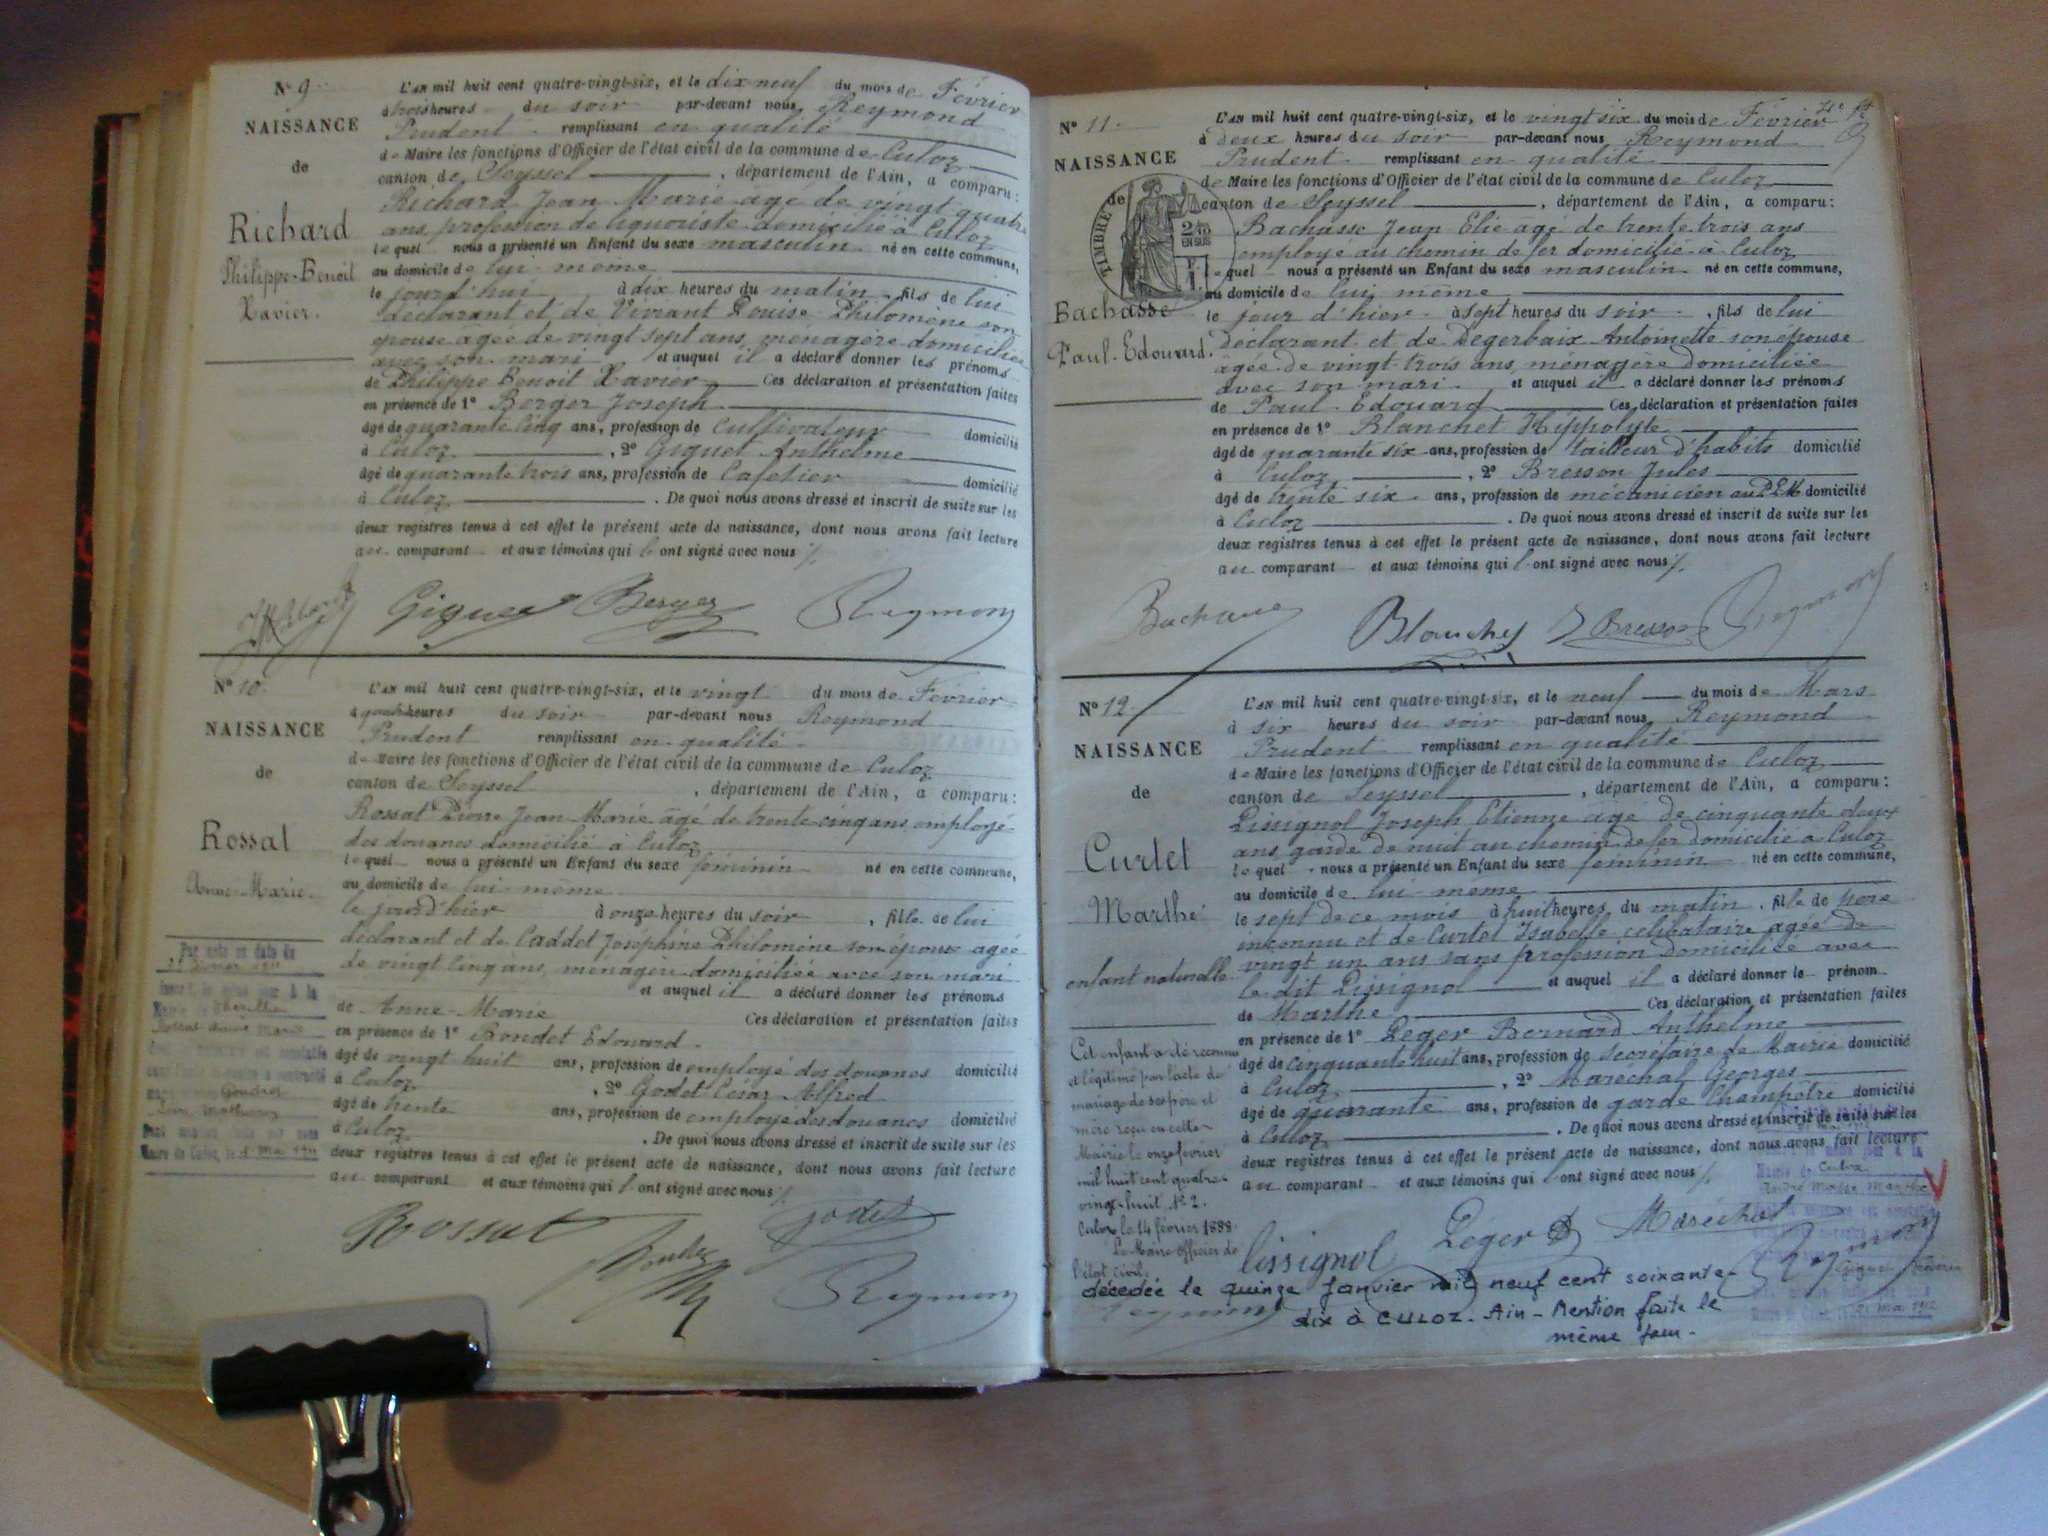 N° 9
NAISSANCE
de
Richard
Philippe-Benoit
Xavier.
L'an mil huit cent quatre-vingt-six, et le dix neuf du mois de Février
à trois heures du soir par-devant nous Reymond
Prudent remplissant en qualité
de Maire les fonctions d'Officier de l'état civil de la commune de Culoz
canton de Seyssel, département de l'Ain, a comparu:
Richard Jean Marie âgé de vingt quatre
ans, profession de liquoriste domicilié à Culoz
lequel nous a présenté un Enfant du sexe masculin né en cette commune,
au domicile de lui-même
le jourd'hui à dix heures du matin fils de lui
déclarant et de Vivant Louise Philomène son
épouse âgée de vingt sept ans, ménagère domiciliée
avec son mari et auquel il a déclaré donner les prénoms
de Philippe Benoit Xavier Ces déclaration et présentation faites
en présence de 1° Berger Joseph
âgé de quarante cinq ans, profession de Cultivateur domicilié
à Culoz, 2° Giguet Anthelme
âgé de quarante trois ans, profession de Cafetier domicilié
à Culoz. De quoi nous avons dressé et inscrit de suite sur les
deux registres tenus à cet effet le présent acte de naissance, dont nous avons fait lecture
au comparant et aux témoins qui l'ont signé avec nous
Giguet Berger Reymond
N° 10
NAISSANCE
de
Rossat
Anne-Marie.
Par acte en date du
Rossat Anne Marie
Maire de Culoz, le 1 Mai 1911
L'an mil huit cent quatre-vingt-six, et le vingt du mois de Février
à quatre heures du soir par-devant nous Reymond
Prudent remplissant en qualité
de Maire les fonctions d'Officier de l'état civil de la commune de Culoz
canton de Seyssel, département de l'Ain, a comparu:
Rossat Pierre Jean Marie âgé de trente cinq ans, employé
des douanes domicilié à Culoz
lequel nous a présenté un Enfant du sexe féminin né en cette commune,
au domicile de lui-même
le jourd'hier à onze heures du soir, fille de lui
déclarant et de Caddet Joséphine Philomène son épouse agée
de vingt cinq ans, ménagère domiciliée avec son mari
et auquel il a déclaré donner les prénoms
de Anne-Marie Ces déclaration et présentation faites
en présence de 1° Rondet Edouard
âgé de vingt huit ans, profession de employé des douanes domicilié
à Culoz, 2° Godet César Alfred
âgé de trente ans, profession de employé des douanes domicilié
à Culoz. De quoi nous avons dressé et inscrit de suite sur les
deux registres tenus à cet effet le présent acte de naissance, dont nous avons fait lecture
au comparant et aux témoins qui l'ont signé avec nous
Rossat Godet
Reymond
N° 11
NAISSANCE
de
TIMBRE
EN SUS
Bachasse
Paul-Edouard.
L'an mil huit cent quatre-vingt-six, et le vingt six du mois de Février
à deux heures du soir par-devant nous Reymond
Prudent remplissant en qualité
de Maire les fonctions d'Officier de l'état civil de la commune de Culoz
canton de Seyssel, département de l'Ain, a comparu:
Bachasse Jean Elie âgé de trente trois ans
employé au chemin de fer domicilié à Culoz
lequel nous a présenté un Enfant du sexe masculin né en cette commune,
au domicile de lui même
le jour d'hier à sept heures du soir, fils de lui
déclarant et de Degerbaix Antoinette son épouse
âgée de vingt trois ans, ménagère domiciliée
avec son mari et auquel il a déclaré donner les prénoms
de Paul-Edouard Ces déclaration et présentation faites
en présence de 1° Blanchet Hippolyte
âgé de quarante six ans, profession de tailleur d'habits domicilié
à Culoz, 2° Bresson Jules
âgé de trente six ans, profession de mécanicien au P.L.M. domicilié
à Culoz. De quoi nous avons dressé et inscrit de suite sur les
deux registres tenus à cet effet le présent acte de naissance, dont nous avons fait lecture
au comparant et aux témoins qui l'ont signé avec nous
Bachasse Blanchet J Bresson Reymond
N° 12
NAISSANCE
de
Curtet
Marthe
enfant naturelle
Cet enfant a été reconnu
et légitimé par l'acte de
mariage de ses père et
mère reçu en cette
Mairie le onze février
mil huit cent quatre
vingt-huit, N° 2.
Culoz le 14 février 1888.
Le Maire officier de
l'état civil.
Reymond
L'an mil huit cent quatre-vingt-six, et le neuf du mois de Mars
à six heures du soir par-devant nous Reymond
Prudent remplissant en qualité
de Maire les fonctions d'Officier de l'état civil de la commune de Culoz
canton de Seyssel, département de l'Ain, a comparu:
Lissignol Joseph Etienne âgé de cinquante deux
ans, garde de nuit au chemin de fer domicilié à Culoz
lequel nous a présenté un Enfant du sexe féminin né en cette commune,
au domicile de lui-même
le sept de ce mois à huit heures du matin, fille de père
inconnu et de Curtet Isabelle célibataire agée de
vingt un ans sans profession domiciliée avec
le dit Lissignol et auquel il a déclaré donner le prénom
de Marthe Ces déclaration et présentation faites
en présence de 1° Léger Bernard Anthelme
âgé de cinquante huit ans, profession de secrétaire de Mairie domicilié
à Culoz, 2° Maréchal Georges
âgé de quarante ans, profession de garde Champêtre domicilié
à Culoz. De quoi nous avons dressé et inscrit de suite sur les
deux registres tenus à cet effet le présent acte de naissance, dont nous avons fait lecture
au comparant et aux témoins qui l'ont signé avec nous
Mairie de Culoz
Lissignol Léger Maréchal Reymond
décédée le quinze janvier mil neuf cent soixante-
dix à CULOZ. Ain - Mention faite le
même jour -